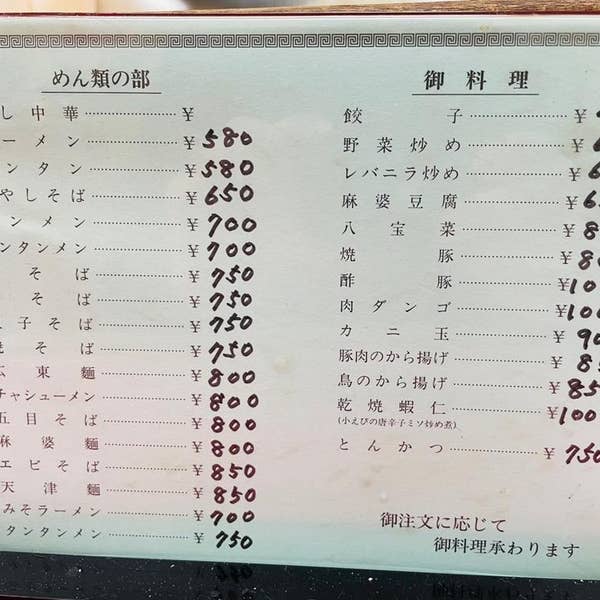 めん類の部
し中華 ¥
ーメン ¥580
ンタン ¥580
やしそば ¥650
ンメン ¥700
ンタンメン ¥700
そば ¥750
そば ¥750
子そば ¥750
焼そば ¥750
広東麺 ¥800
チャシューメン ¥800
五目そば ¥800
麻婆麺 ¥800
エビそば ¥850
天津麺 ¥850
みそラーメン ¥700
タンタンメン ¥750
御料理
餃子 ¥
野菜炒め ¥
レバニラ炒め ¥6
麻婆豆腐 ¥6
八宝菜 ¥8
焼豚 ¥80
酢豚 ¥100
肉ダンゴ ¥100
カニ玉 ¥90
豚肉のから揚げ ¥85
鳥のから揚げ ¥850
乾焼蝦仁 ¥100
(小えびの唐辛子ミソ炒め煮)
とんかつ ¥750
御注文に応じて
御料理承わります